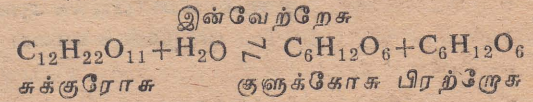 இன்வேற்றேசு
C₁₂H₂₂O₁₁+H₂O ⇌ C₆H₁₂O₆+C₆H₁₂O₆
சுக்குரோசு குளுக்கோசு பிரற்றோசு